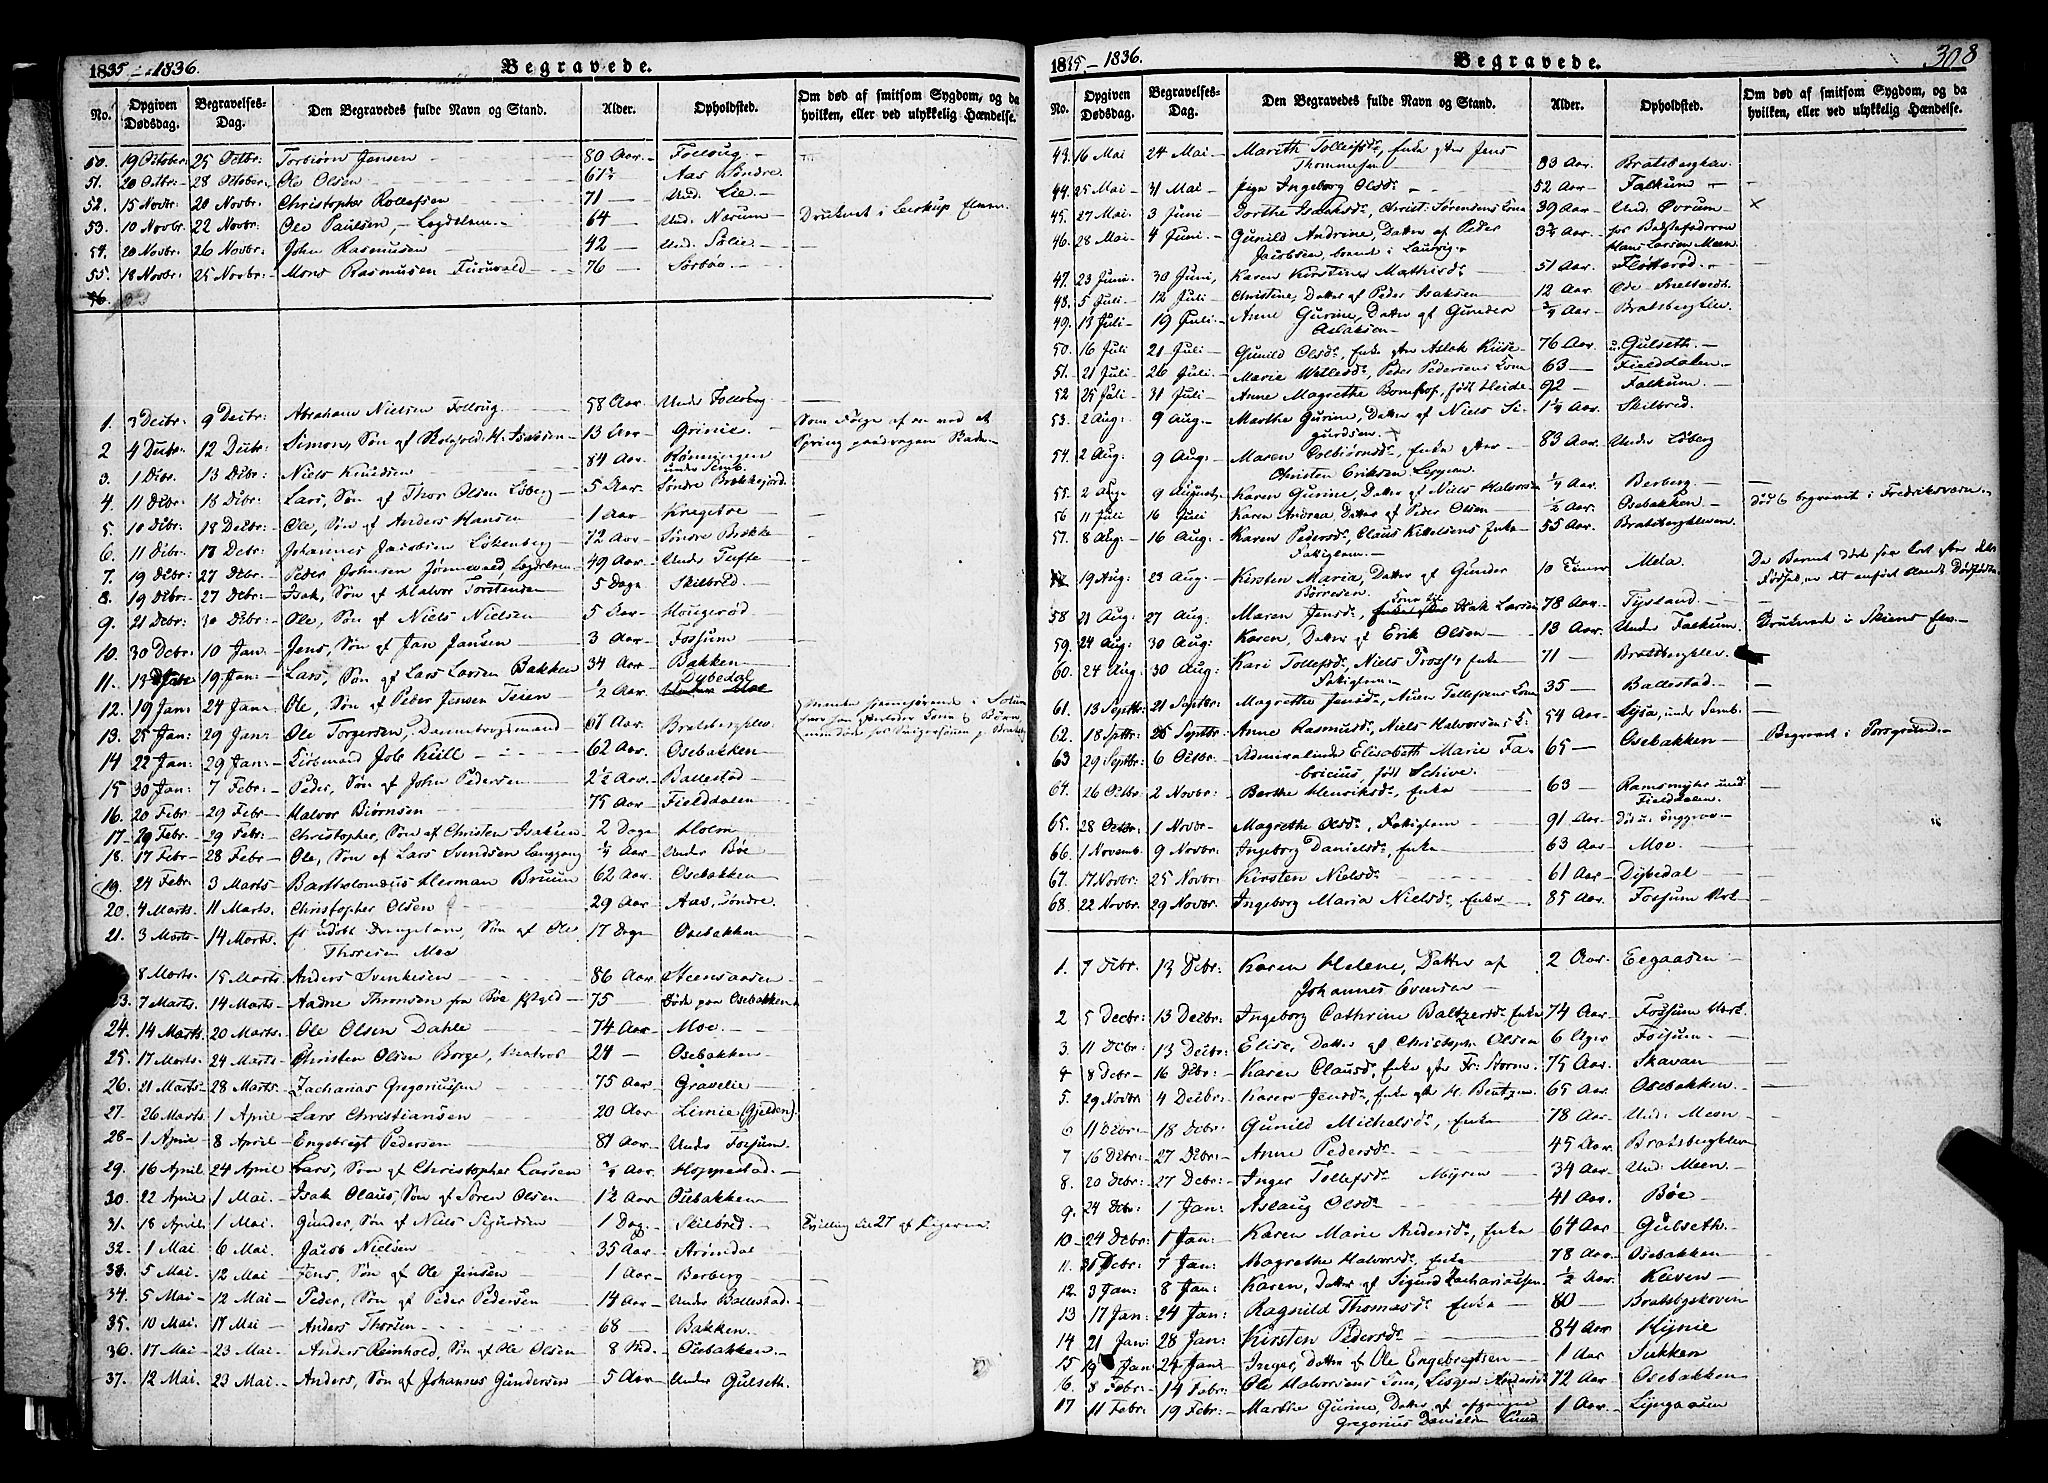 1835 – 1836. Begravede.
No. Opgiven Dødsdag. Begravelses-Dag. Den Begravedes fulde Navn og Stand. Alder. Opholdsted. Om død af smitsom Sygdom, og da hvilken, eller ved ulykkelig Hændelse.
50. 19 October 25 Octbr: Torbiørn Jensen 80 Aar Folloug
51. 20 Octbr: 28 October Ole Olsen 61½ Aas Søndre
52. 15 Novbr 20 Novbr. Christopher Rollefsen 71 Und. Lie
53. 10 Novbr: 22 Novbr. Ole Paulsen, Logdslem 64 Und. Narum Druknet i Lerkup Elven
54. 20 Novbr: 26 Novbr: John Rasmussen 42 Und. Solie
55. 18 Novbr: 25 Novbr: Mons Rasmusen Furuvald 76 Sørbøe
1. 3 Decbr: 9 Decbr: Abraham Nielsen Follaug 58 Aar Under Folloug
2 4 Decbr: 12 Decbr: Simon, Søn af H. Isaksen 13 Aar Grinie Som Følge af et ved et Spring paadragen Skade
3. 1 Dcbr. 13 Dcbr: Niels Knudsen 84 Aar Hønningen under Semb.
4. 11 Dcbr: 18 Dcbr: Lars, Søn af Thor Olsen Løberg 5 Aar Søndre Brekkejord
5. 10 Dcbr: 18 Decbr: Ole, Søn af Anders Hansen 1 Aar Kragebøe
6. 11 Dcbr: 17 Dcbr: Johannes Jacobsen Løkenberg 72 Aar Søndre Brekke
7. 19 Dcbr: 27 Dcbr: Peder Johnsen Jørnevald, Logdslem 49 Aar Under Tufte
8. 19 Dcbr: 27 Dcbr: Isak, Søn af Halvor Torstensen 5 Dage Skilbred
9. 21 Dcbr: 30 Dcbr: Ole, Søn af Niels Nielsen 5 Aar Hougerød
10. 30 Dcbr: 10 Jan. Jens, Søn af Jan Jansen 3 Aar Fossum
11. 13 Jan 19 Jan: Lars, Søn af Lars Larsen Bakken 34 Aar Bakken
12. 19 Jan: 24 Jan: Ole, Søn af Peder Jensen Teien ½ Aar Dybedal
13. 25 Jan: 29 Jan: Ole Torgersen, Dannebrogsmand 67 Aar Bratsbergklev
14 22 Jan: 29 Jan: Job Küll 62 Aar Osebakken
15 30 Jan: 7 Febr: Peder, Søn af John Pedersen 2½ Aar Ballestad
16. 20 Febr 29 Febr: Halvor Biørnsen 75 Aar Fielddalen
17. 29 Febr. 29 Febr: Christopher, Søn af Christen Isaksen 2 Dage Holm
18. 17 Febr: 28 Febr: Ole, Søn af Lars Svendsen Langgang ¾ Aar Under Bøe
19. 24 Febr 3 Marts. Bartholomæus Herman Bruun 62 Aar Osebakken
20. 4 Marts. 11 Marts. Christopher Olsen 29 Aar Aas, søndre
21. 3 Marts 14 Marts. et udøbt Drengebarn, Søn af Ole Thoresen Moe 17 Dage Osebakken
8 Marts. 15 Marts Anders Svenkesen 86 Aar Steensaasen
23. 7 Marts 14 Marts: Aadne Thomsen fra Bøe 75 Døde paa Osebakken
24. 14 Marts 20 Marts. Ole Olsen Dahle 74 Aar Moe
25. 17 Marts. 24 Marts Christen Olsen Borge, Matros 24 Osebakken
26. 21 Marts 28 Marts. Zacharias Gregoriussen 75 Aar Gravelie
27. 26 Marts. 1 April Lars Christiansen 20 Aar Limie (Gjelden)
28 1 April 8 April Engebregt Pedersen 81 Aar Under Fossum
29. 16 April. 24 April Lars, Søn af Christopher Larsen ¾ Aar Hoppestad
30. 22 April 1 Mai. Isak Olaus, Søn af Søren Olsen 1½ Aar Osebakken
31. 18 April. 1 Mai. Gunder, Søn af Niels Sigurdsen 1 Dag Skilbred. Tvilling See 27 af Pigerne.
32. 1 Mai 6 Mai. Jacob Nielsen 35 Aar Strømdal
33. 5 Mai. 12 Mai. Jens, Søn af Ole Jensen 1 Aar Berberg
34. 5 Mai 12 Mai Peder, Søn af Peder Pedersen 14 Aar Under Ballestad.
35. 10 Mai. 17 Mai Anders Thorsen 68 Bakken
36. 17 Mai 23 Mai Anders Reinhold, Søn af Ole Olsen 8 Osebakken
37. 12 Mai. 23 Mai. Anders, Søn af Johannes Gundersen 5 Aar Under Gulseth.
1835 – 1836. Begravede. 308
No. Opgiven Dødsdag. Begravelses-Dag. Den Begravedes fulde Navn og Stand. Alder. Opholdsted. Om død af smitsom Sygdom, og da hvilken, eller ved ulykkelig Hændelse.
43. 16 Mai 24 Mai Marith Tollefsd., Enke efter Jens Thommesen 83 Aar. Bratsbergklev
44. 25 Mai 31 Mai Pige Ingeborg Olsd. 52 Aar Falkum
45. 27 Mai. 3 Juni Dorthe Isaksd., Christ: Sørensens Kone 39 Aar Und. Øvrum
46. 28 Mai 4 Juni Gunild Andrine, Datter af Peder Jacobsen, boende i Laurvig 3¾ Aar Hans Larsen Meen
47. 23 Juni 30 Juni, Karen Kirstine Mathisd. 51 Aar Fløtterød
48. 5 Juli 12 Juli Christine, Datter af Peder Isaksen 12 Aar Øde Snelvedt
49. 13 Juli 19 Juli Anne Gurine, Datter af Gunder Aslaksen ¾ Aar Bratsberglev
50. 16 Juli 21 Juli Gunild Olsd., Enke efter Aslak Riise 76 Aar u. Gulseth
51. 21 Juli 26 Juli. Marie Wetlesd., Peder Pedersens Kone 63 Fielddalen
52 25 Juli 31 Juli Anne Magrethe Bomhof, født Heide 92 Falkum
53. 2 Aug: 9 Aug: Marthe Gurine, Datter af Niels Sigurdsen 1¼ Aar. Skilbred.
54. 2 Aug: 9 Aug: Maren Tolbiørnsd., Enke efter Christen Eriksen 83 Aar Under Løberg
55. 2 Aug 9 August Karen Gurine, Datter af Niels Halvorsen ¼ Aar Berberg
56 11 Juli 16 Juli Karen Andrea, Datter af Peder Olsen ½ Aar Osebakken død & begravet i Fredriksværn
57. 8 Aug: 16 Aug: Karen Pedersd., Claus Kittelsens Enke Fattiglem 55 Aar Bratsbergkleven
19 Aug: 23 Aug: Kirsten Maria, Datter af Gunder Børresen 10 Timer Mæla Da Barnet døde saa kort efter dets Fødsel, er det anført blandt Dødfødte
58 21 Aug: 27 Aug: Maren Jensd., Kone til Isak Larsen 78 Aar Tyeland
59. 24 Aug: 30 Aug: Karen, Datter af Erik Olsen 13 Aar Under Falkum. Druknet i Skiens Elv
60. 24 Aug: 30 Aug: Kari Tollefsd., Niels Enke Fattiglem 71 Bratsbergklev
61. 13 Septbr: 21 Septbr: Magrethe Jensd., Tollefsens Kone 35 Ballestad
62. 18 Sptbr: 25 Septbr: Anne Rasmusd., Niels Halvorsens K: 54 Aar Lysa, under Semb.
63 29 Septbr: 6 Octbr: Admiralinde Elisabeth Marie Fabricius, født Schive. 65 Osebakken Begravet i Porsgrund
64. 26 Octbr. 2 Novbr: Berthe Henriksd., Enke 63 Ramsmyhr und: Fielddalen.
65. 28 Octbr: 1 Novbr Magrethe Olsd., Fattiglem 91 Aar
66. 1 Novemb. 9 Novbr: Ingeborg Danielsd., Enke 63 Aar Moe
67. 17 Novbr: 25 Novbr Kirsten Nielsd. 61 Aar Dybedal
68. 22 Novbr: 29 Novbr. Ingeborg Maria Nielsd., Enke 85 Aar. Fossum Verk
1. 7 Dcbr: 13 Dcbr: Karen Helene, Datter af Johannes Evensen 2 Aar. Eegaasen
2 5 Decbr: 13 Decbr: Ingeborg Cathrine Baltzersd. Enke 74 Aar Fossum Verk.
3. 11 Dcbr: 13 Decbr: Elise, Datter af Christoph: Olsen 6 Uger Fossum
4 8 Dcbr 16 Dcbr: Karen Clausd., Enke efter Fr: Storm 75 Aar. Skavan
5. 29 Novbr 4 Decbr: Karen Jensd., Enke eft H. Bentzen 65 Aar Osebakken
6 11 Dcbr: 18 Dcbr: Gunild Michelsd., Enke 78 Aar Und: Meen
7 16 Dcbr: 27 Dcbr: Anne Pedersd. 45 Aar Bratsbergklev
8. 20 Dcbr: 27 Dcbr: Inger Tollefsd. Myren 34 Aar Und: Meen
9. 24 Dcbr: 1 Jan: Aslaug Olsd. 41 Aar. Bøe
10 24 Dcbr: 1 Jan: Karen Marie Andersd., Enke 64 Aar Gulseth
11. 31 Dcbr: 7 Jan: Magrethe Halvorsd. Enke 78 Aar Osebakken
12 3 Jan: 8 Jan: Karen, Datter af Sigurd Zachariassen ½ Aar. Kleven
13 17 Jan: 24 Jan: Ragnild Thomasd. Enke 80 Bratsbgskoven
14 21 Jan: 28 Jan: Kirsten Pedersd. 84 Aar Kynie
15 19 Jan: 24 Jan: Inger, Datter af Ole Engebregtsen 1 Aar Sukken
16. 8 Febr: 14 Febr: Ole Halvorsens Kone, Andersd 72 Aar Osebakken
17 11 Febr: 19 Febr: Marthe Gurine, Datter af afgangne Gregorius Danielsen Lund 1 Aar Lyngaasen